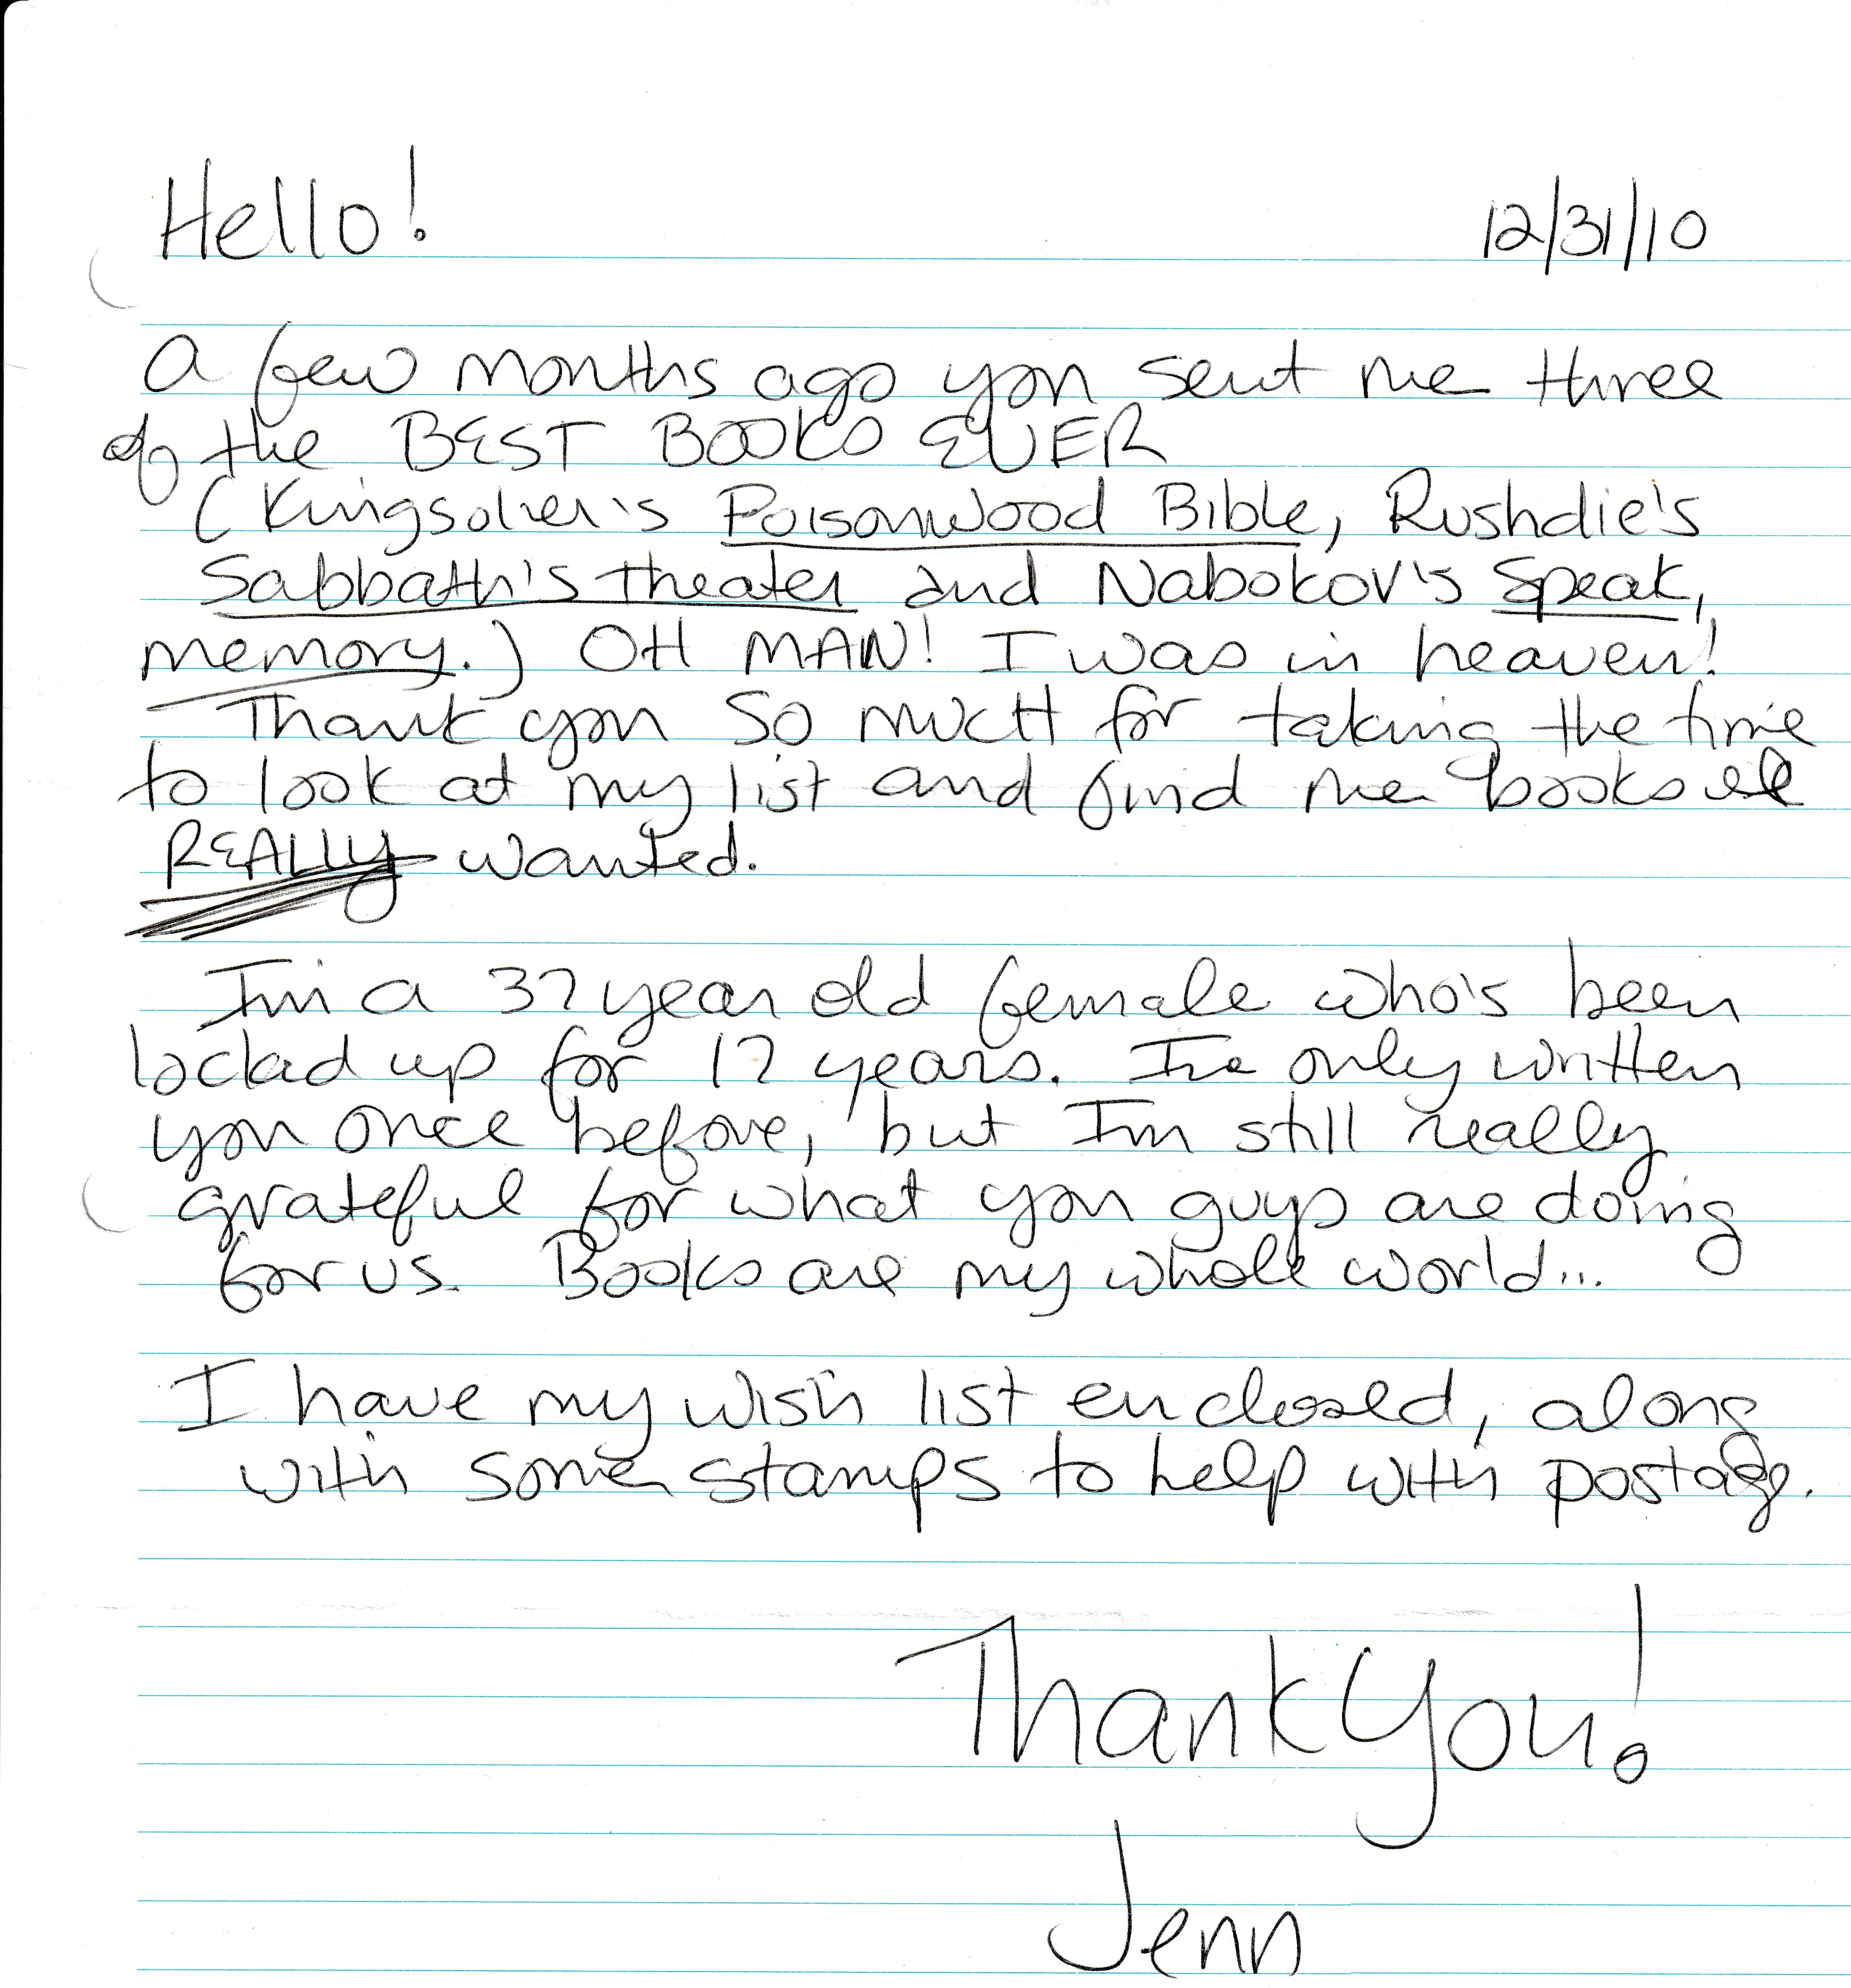 Hello! 12/31/10
A few months ago you sent me three
of the BEST BOOKS EVER
(Kingsolver's Poisonwood Bible, Rushdie's
Sabbath's Theater and Nabokov's Speak,
memory.) OH MAN! I was in heaven!
Thank you SO MUCH for taking the time
to look at my list and find me books
REALLY wanted.
I'm a 37 year old female who's been
locked up for 17 years. I've only written
you once before, but I'm still really
grateful for what you guys are doing
for us. Books are my whole world...
I have my wish list enclosed, along
with some stamps to help with postage.
Thank You!
Jenn